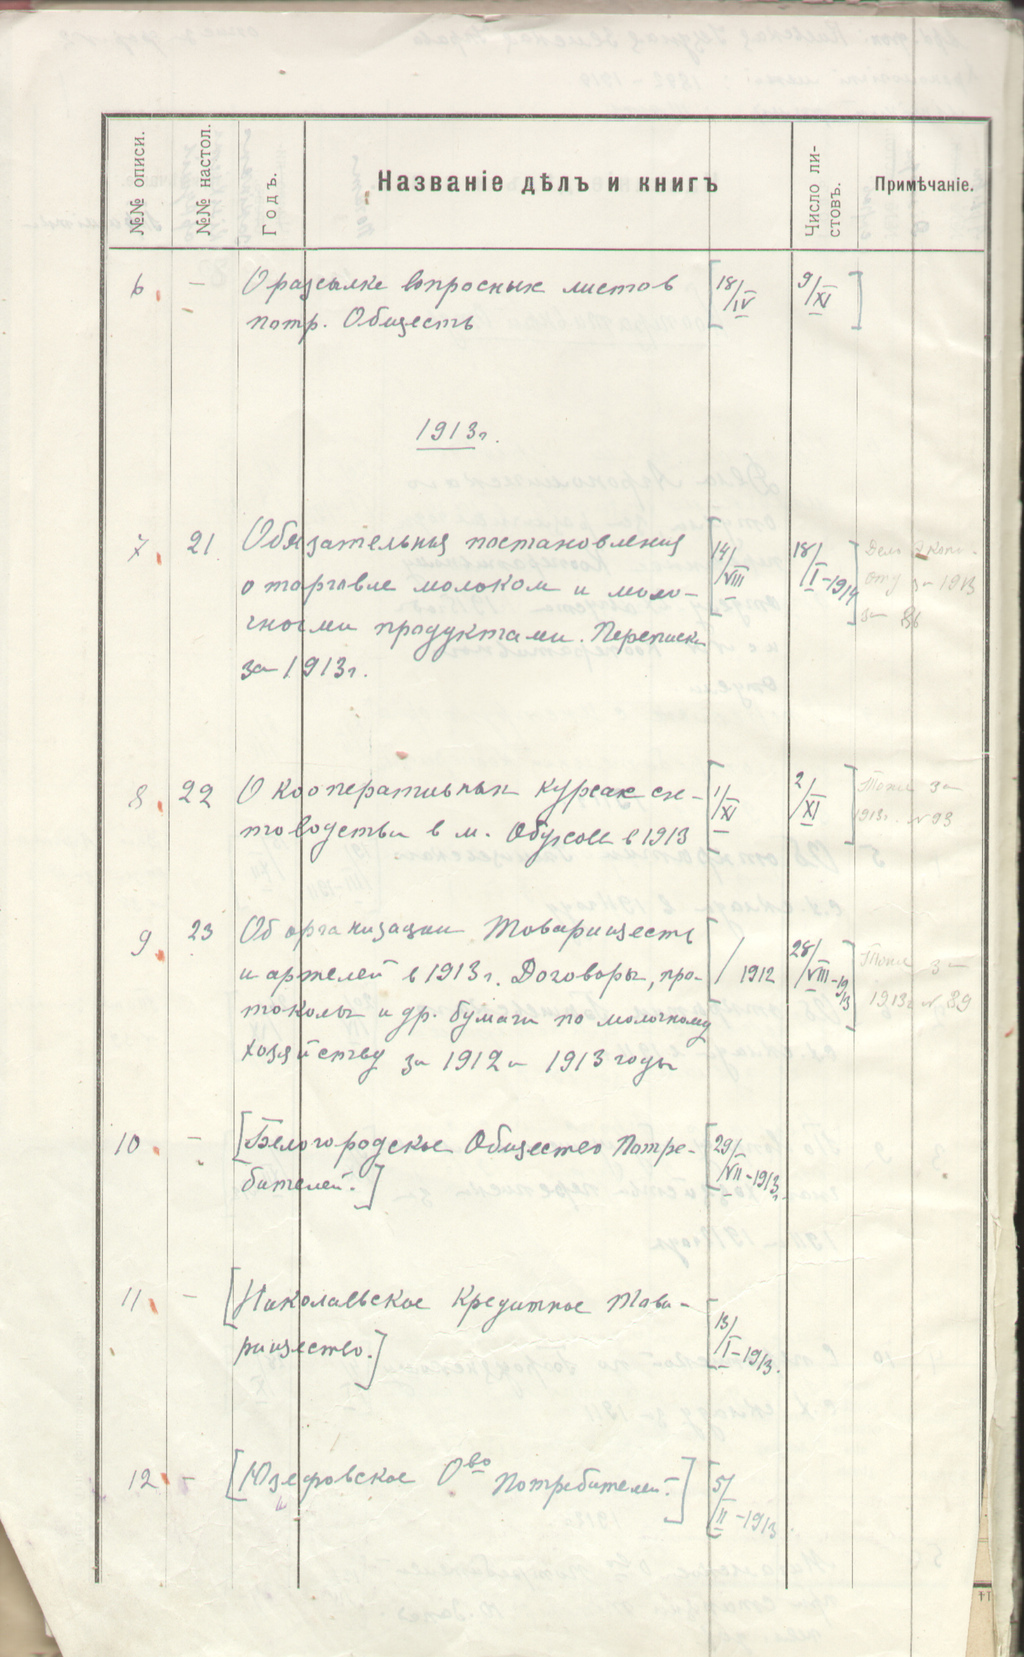 №№ описи. №№ настол. Годъ. Названіе дѣлъ и книгъ Число ли-стовъ. Примѣчаніе.
6. — О разсылке вопросных листов [18/IV 9/XI]
потр. Обществ
1913 г.
7. 21 Обязательныя постановления [14/VIII 18/I-1914]
о торговле молоком и моло-
чными продуктами. Переписка
за 1913 г.
за 1913
за 86
8. 22 О кооперативных курсах ск- [1/XI 2/XI] Тоже за
товодства в м. Обухове в 1913 1913г. № 93
9. 23 Об организации Товариществ [/1912 28/VIII-1913] Тоже за
и артелей в 1913 г. Договоры, про- 1913г. № 89
токолы и др. бумаги по молочному
хозяйству за 1912 и 1913 годы
10. — [Белогородское Общество Потре- [29/VII-1913г.
бителей.]
11. — [Николаевское Кредитное Това- [13/I-1913.
рищество.]
12. — [Юзефовское О-во Потребителей.] [5/II-1913.